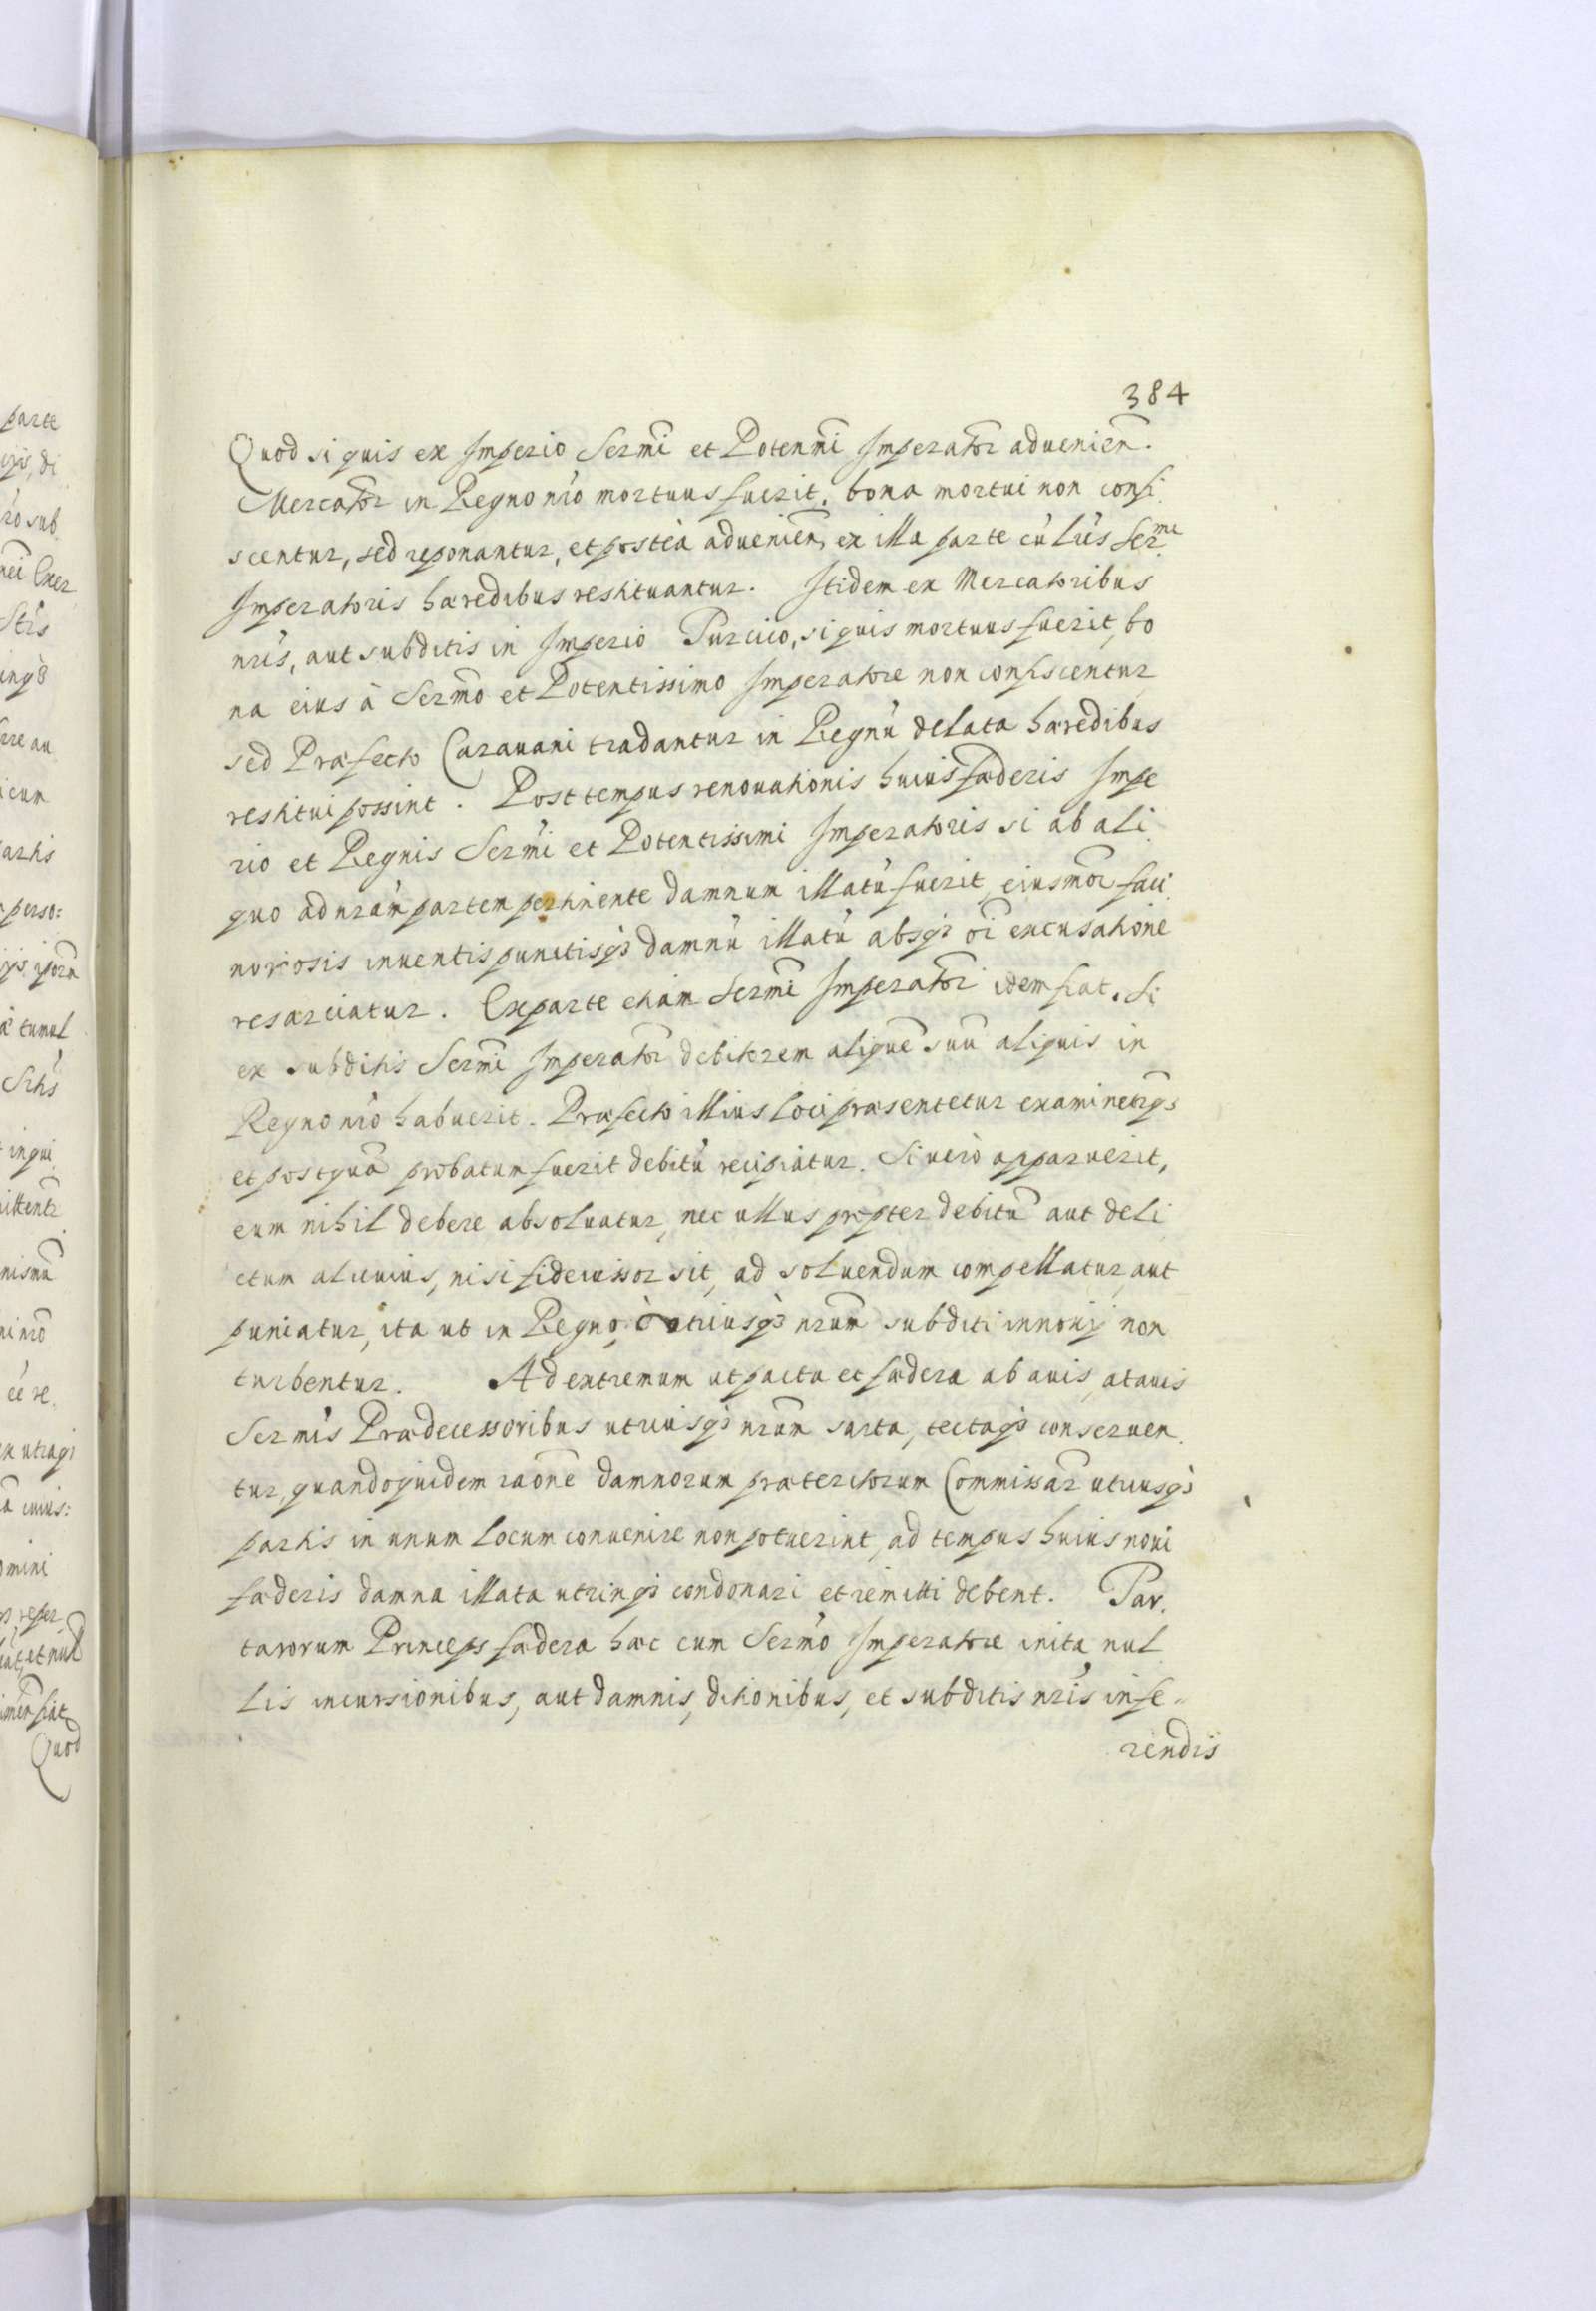 parte
ijs, di
ro sub
nei Exer
Stis
inqs
rre au
icun
artis
perso:
ijs, iporu
a tumul
Stis
ingui
ittentr
nismu
ni nro
ee re
ex utraqs
a cuius:
omini
qs, refer
iat, et nul
men fiat
Quod
384
Quod si quis ex Imperio Sermi et Potenmi Imperator aduenien.
Mercator in Regno nro mortuus fuerit, bona mortui non confi
scentur, sed reponantur, et postea aduenien, ex illa parte cu lris Serme
Imperatoris hæredibus restituantur. Itidem ex Mercatoribus
nris, aut subditis in Imperio Turcico, si quis mortuus fuerit, bo
na eius à Sermo et Potentissimo Imperatore non confiscentur
sed Præfecto Carauani tradantur in Regnu delata hæredibus
restitui possint. Post tempus renouationis huius fœderis Impe
rio et Regnis Sermi et Potentissimi Imperatoris si ab ali
quo ad nram partem pertinente damnum illatu fuerit, eiusmoi faci
norosis inuentis punitisqs damnu illatu absqs oi excusatione
resarciatur. Ex parte etiam Sermi Imperator idem fiat. Si
ex subditis Sermi Imperator debitorem alique suu aliquis in
Regno nro habuerit. Præfecto illius loci præsentetur examineturqs
et postqua probatum fuerit debitu recipiatur. Si uero apparuerit,
eum nihil debere absoluatur, nec ullus propter debitu aut deli
ctum alicuius, nisi fideiussor sit, ad soluendum compellatur, aut
puniatur, ita ut in Regno utriusqs nrum subditi innoxij non
turbentur. Ad extremum ut pacta et fædera ab auis, atauis
Sermis Prædecessoribus utriusqs nrum sarta, tectaqs conseruen
tur, quandoquidem raone damnorum præteritorum Commissar utriusqs
partis in unum locum conuenire non potuerint, ad tempus huius noui
fæderis damna illata utrinqs condonari et remitti debent. Tar
tarorum Princeps fædera hæc cum Sermo Imperatore inita nul
lis incursionibus, aut damnis, ditionibus, et subditis nris infe-
rendis